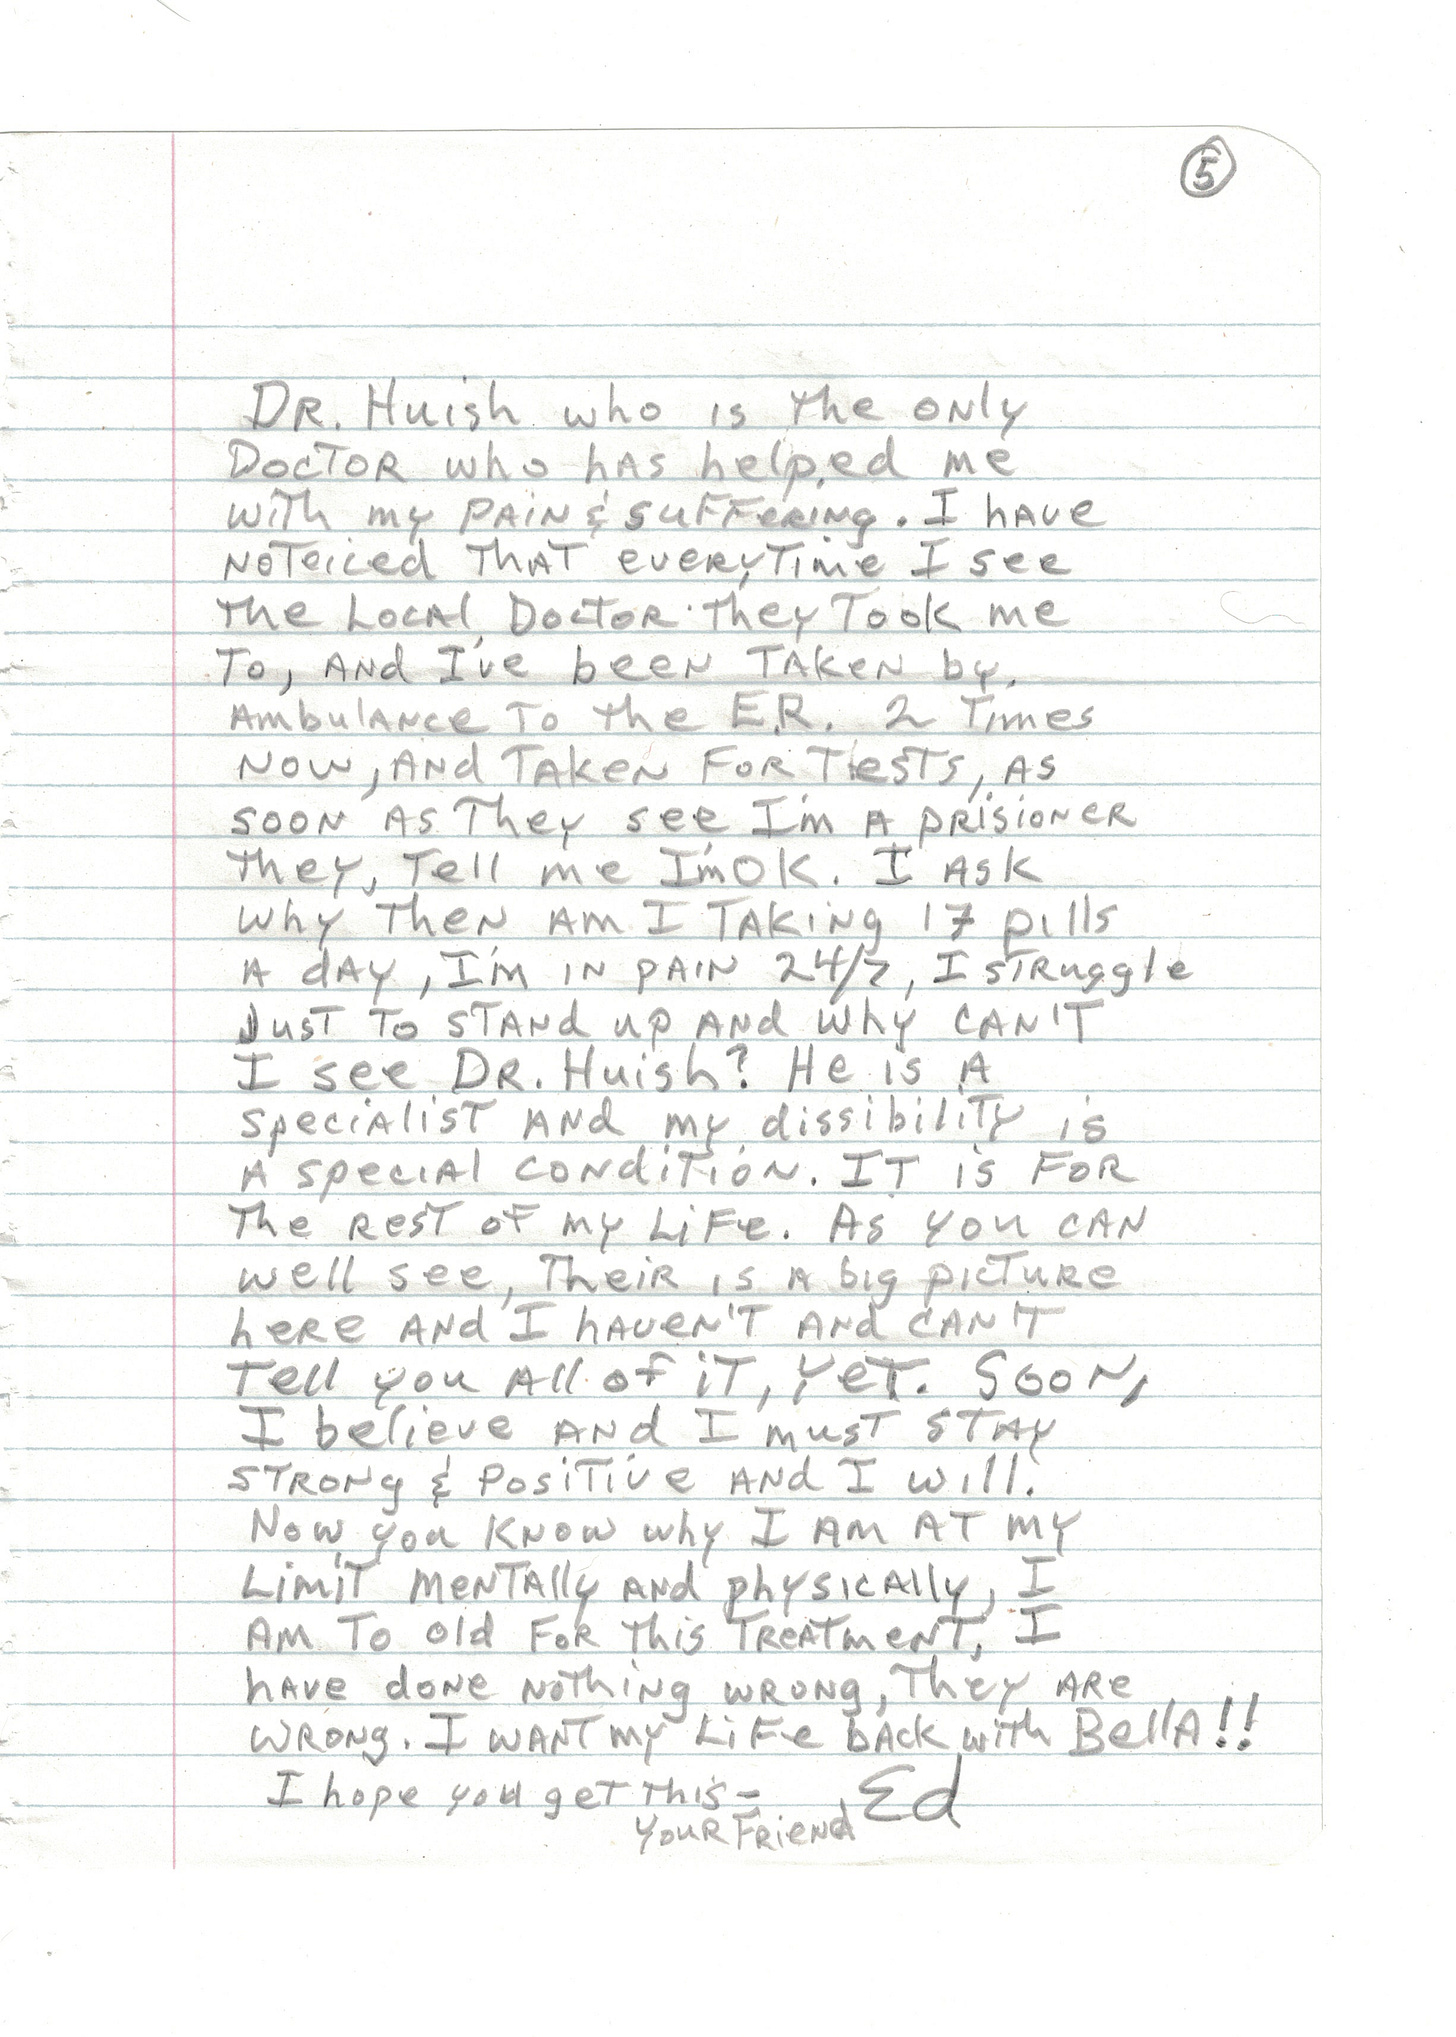 5
DR. Huish who is the only
Doctor who has helped me
with my pain & suffering. I have
noteiced that everytime I see
the Local Doctor they Took me
To, and I've been Taken by
Ambulance To the E.R. 2 Times
now, and Taken For Tests, as
soon as They see I'm a prisioner
they Tell me I'm OK. I ask
why Then am I Taking 17 pills
a day, I'm in pain 24/7, I struggle
Just To stand up and why can't
I see DR. Huish? He is a
specialist and my dissibility is
a special condition. It is For
The rest of my Life. As you can
well see, Their is a big picture
here and I haven't and can't
Tell you all of it, yet. Soon,
I believe and I must stay
strong & positive and I will.
Now you know why I am at my
Limit mentally and physically, I
am To old For this Treatment, I
have done nothing wrong, They are
wrong. I want my Life back with Bella!!
I hope you get this -
your Friend Ed